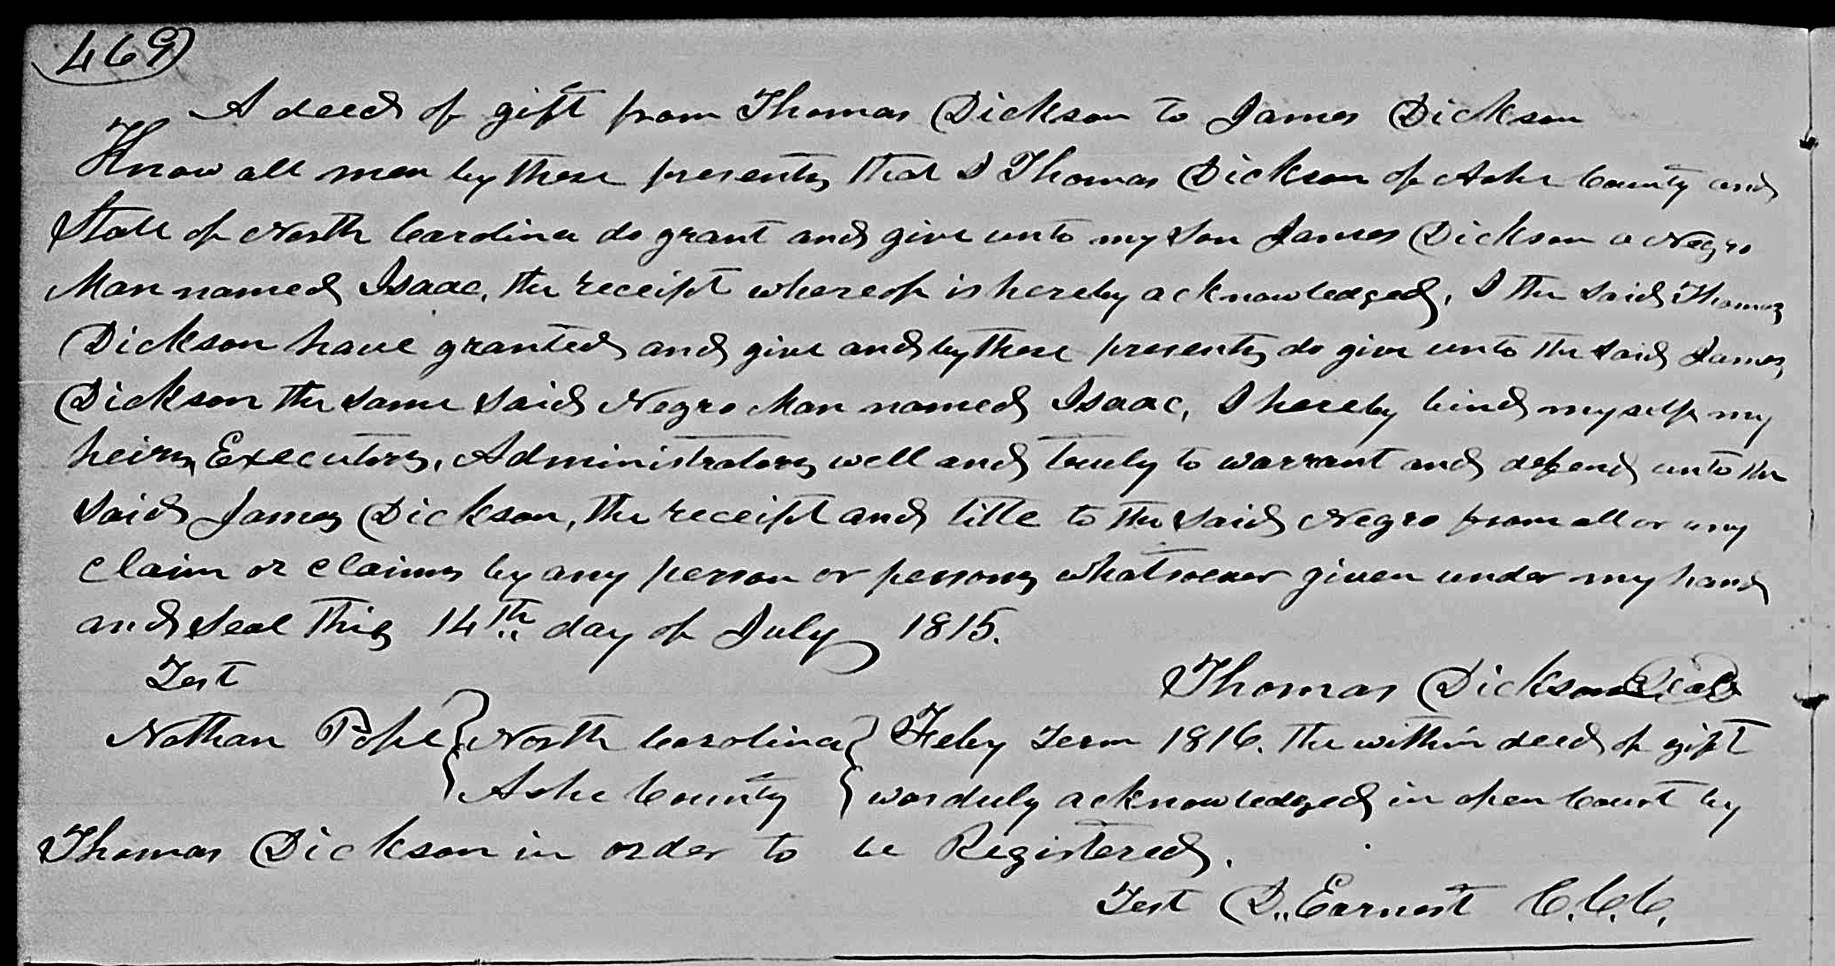 469)
A deed of gift from Thomas Dickson to James Dickson
Know all men by these presents, that I Thomas Dickson of Ashe County and
State of North Carolina do grant and give unto my Son James Dickson a Negro
Man named Isaac, the receipt whereof is hereby acknowledged, I the said Thomas
Dickson have granted and give and by these presents do give unto the said James
Dickson the same said Negro Man named Isaac, I hereby bind myself my
heirs, Executors, Administrators well and truly to warrant and defend unto the
said James Dickson, the receipt and title to the said Negro from all or any
claim or claims by any person or persons whatsoever given under my hand
and seal this 14th day of July 1815.
Test
Thomas Dickson Seal
Nathan Pope } North Carolina } Feby Term 1816. The within deed of gift
} Ashe County } was duly acknowledged in open Court by
Thomas Dickson in order to be Registered.
Test D. Earnest C.C.C.